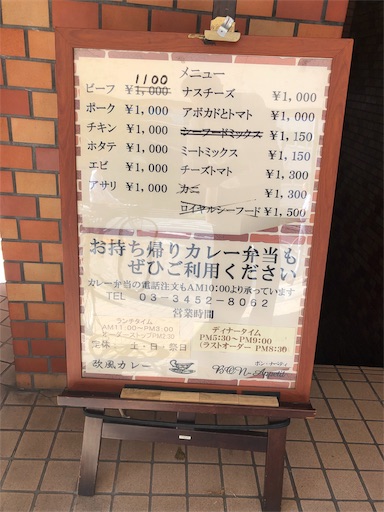 1100 メニュー
ビーフ ¥1,000 ナスチーズ ¥1,000
ポーク ¥1,000 アボカドとトマト ¥1,000
チキン ¥1,000 シーフードミックス ¥1,150
ホタテ ¥1,000 ミートミックス ¥1,150
エビ ¥1,000 チーズトマト ¥1,300
アサリ ¥1,000 カニ ¥1,300
ロイヤルシーフード ¥1,500
お持ち帰りカレー弁当も
ぜひご利用ください
カレー弁当の電話注文もAM10:00より承っています
TEL 03-3452-8062
営業時間
ランチタイム
AM11:00〜PM3:00
オーダーストップPM2:30
定休 土・日・祭日
ディナータイム
PM5:30〜PM9:00
(ラストオーダー PM8:30)
欧風カレー
ボン・ナペティ
BON-Appétit